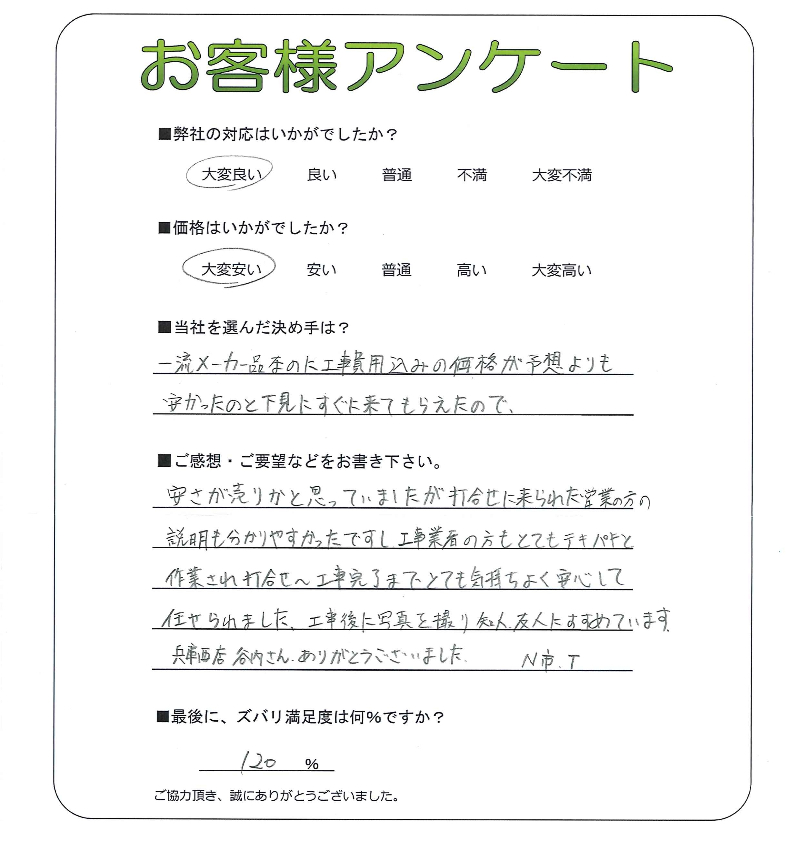 お客様アンケート
■弊社の対応はいかがでしたか？
大変良い 良い 普通 不満 大変不満
■価格はいかがでしたか？
大変安い 安い 普通 高い 大変高い
■当社を選んだ決め手は？
一流メーカー品なのに工事費用込みの価格が予想よりも
安かったのと下見にすぐに来てもらえたので、
■ご感想・ご要望などをお書き下さい。
安さが売りかと思っていましたが打合せに来られた営業の方の
説明も分かりやすかったですし工事業者の方もとてもテキパキと
作業され打合せ～工事完了までとても気持ちよく安心して
任せられました、工事後に写真を撮り知人、友人にすすめています
兵庫西店 谷内さん、ありがとうございました。 N市、T
■最後に、ズバリ満足度は何%ですか？
120 %
ご協力頂き、誠にありがとうございました。